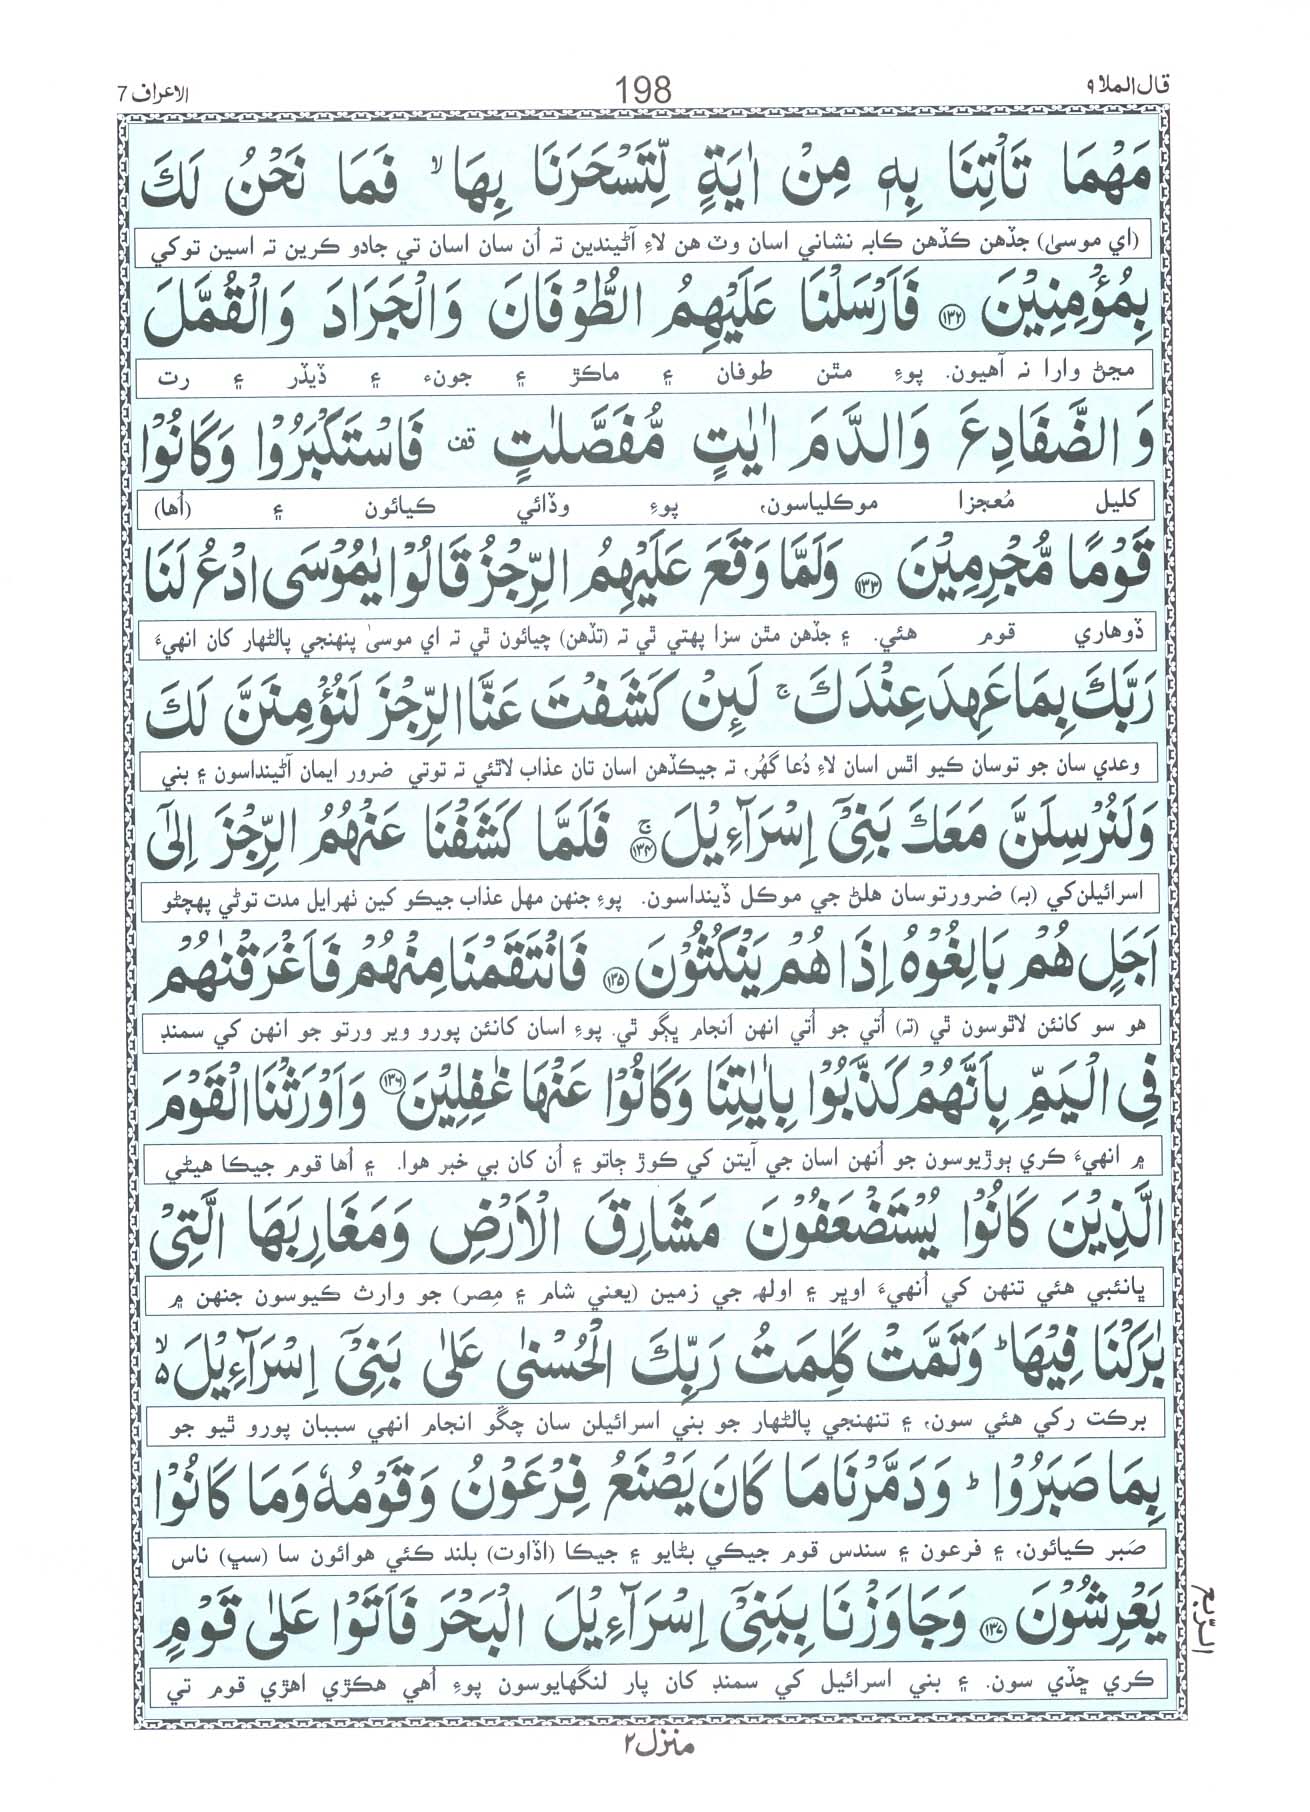 قال الملا ۹
198
الاعراف 7
مَهْمَا تَاْتِنَا بِهٖ مِنْ اٰيَةٍ لِّتَسْحَرَنَا بِهَا ۙ فَمَا نَحْنُ لَكَ
(اي موسىٰ) جڏهن ڪڏهن ڪابہ نشاني اسان وٽ هن لاءِ آڻيندين تہ اُن سان اسان تي جادو ڪرين تہ اسين توکي
بِمُؤْمِنِيْنَ ﴿۱۳۲﴾ فَاَرْسَلْنَا عَلَيْهِمُ الطُّوْفَانَ وَالْجَرَادَ وَالْقُمَّلَ
مڃڻ وارا نہ آهيون. پوءِ مٿن طوفان ۽ ماڪڙ ۽ جونءِ ۽ ڏيڏر ۽ رت
وَالضَّفَادِعَ وَالدَّمَ اٰيٰتٍ مُّفَصَّلٰتٍ قف فَاسْتَكْبَرُوْا وَكَانُوْا
کليل مُعجزا موڪلياسون، پوءِ وڏائي ڪيائون ۽ (اُها)
قَوْمًا مُّجْرِمِيْنَ ﴿۱۳۳﴾ وَلَمَّا وَقَعَ عَلَيْهِمُ الرِّجْزُ قَالُوْا يٰمُوْسَى ادْعُ لَنَا
ڏوهاري قوم هئي. ۽ جڏهن مٿن سزا پهتي ٿي تہ (تڏهن) چيائون ٿي تہ اي موسىٰ پنهنجي پالڻهار کان انهيءَ
رَبَّكَ بِمَا عَهِدَ عِنْدَكَ ۚ لَئِنْ كَشَفْتَ عَنَّا الرِّجْزَ لَنُؤْمِنَنَّ لَكَ
وعدي سان جو توسان ڪيو اٿس اسان لاءِ دُعا گهُر، تہ جيڪڏهن اسان تان عذاب لاٿئي تہ توتي ضرور ايمان آڻينداسون ۽ بني
وَلَنُرْسِلَنَّ مَعَكَ بَنِيْٓ اِسْرَآءِيْلَ ﴿۱۳۴﴾ۚ فَلَمَّا كَشَفْنَا عَنْهُمُ الرِّجْزَ اِلٰٓى
اسرائيلن کي (بہ) ضرور توسان هلڻ جي موڪل ڏينداسون. پوءِ جنهن مهل عذاب جيڪو کين ٺهرايل مدت توڻي پهچڻو
اَجَلٍ هُمْ بَالِغُوْهُ اِذَا هُمْ يَنْكُثُوْنَ ﴿۱۳۵﴾ فَانْتَقَمْنَا مِنْهُمْ فَاَغْرَقْنٰهُمْ
هو سو کانئن لاٿوسون ٿي (تہ) اُتي جو اُتي انهن اَنجام ڀڳو ٿي. پوءِ اسان کانئن پورو وير ورتو جو انهن کي سمنڊ
فِي الْيَمِّ بِاَنَّهُمْ كَذَّبُوْا بِاٰيٰتِنَا وَكَانُوْا عَنْهَا غٰفِلِيْنَ ﴿۱۳۶﴾ وَاَوْرَثْنَا الْقَوْمَ
۾ انهيءَ ڪري ٻوڙيوسون جو اُنهن اسان جي آيتن کي ڪوڙ ڄاتو ۽ اُن کان بي خبر هوا. ۽ اُها قوم جيڪا هيڻي
الَّذِيْنَ كَانُوْا يُسْتَضْعَفُوْنَ مَشَارِقَ الْاَرْضِ وَمَغَارِبَهَا الَّتِيْ
ڀانئبي هئي تنهن کي اُنهيءَ اوڀر ۽ اولهہ جي زمين (يعني شام ۽ مِصر) جو وارث ڪيوسون جنهن ۾
بٰرَكْنَا فِيْهَا ؕ وَتَمَّتْ كَلِمَتُ رَبِّكَ الْحُسْنٰى عَلٰى بَنِيْٓ اِسْرَآءِيْلَ ۵ۙ
برڪت رکي هئي سون، ۽ تنهنجي پالڻهار جو بني اسرائيلن سان چڱو انجام انهي سببان پورو ٿيو جو
بِمَا صَبَرُوْا ؕ وَدَمَّرْنَا مَا كَانَ يَصْنَعُ فِرْعَوْنُ وَقَوْمُهٗ وَمَا كَانُوْا
صَبر ڪيائون، ۽ فرعون ۽ سندس قوم جيڪي بڻايو ۽ جيڪا (اڏاوت) بلند ڪئي هوائون سا (سڀ) ناس
يَعْرِشُوْنَ ﴿۱۳۷﴾ وَجَاوَزْنَا بِبَنِيْٓ اِسْرَآءِيْلَ الْبَحْرَ فَاَتَوْا عَلٰى قَوْمٍ
الربع
ڪري ڇڏي سون. ۽ بني اسرائيل کي سمنڊ کان پار لنگهايوسون پوءِ اُهي هڪڙي اهڙي قوم تي
منزل ۲